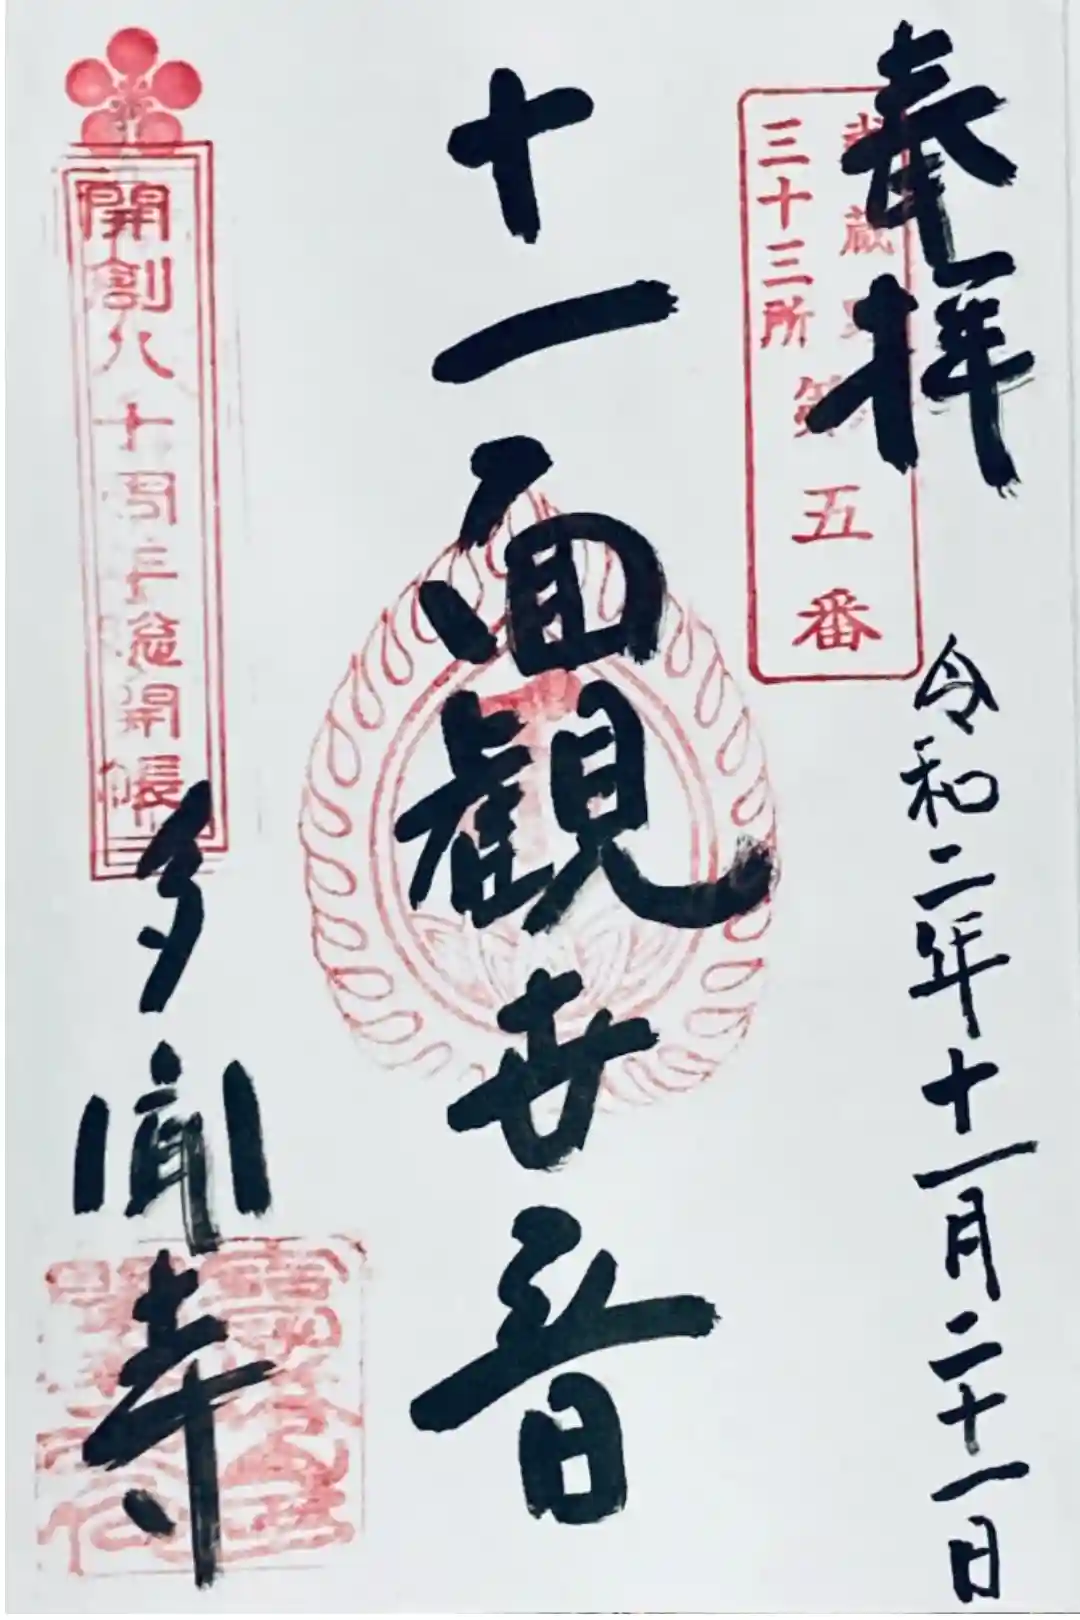 奉拝
令和二年十一月二十一日
武蔵野
三十三所
第五番
十一面観世音
開創八十周年総開帳
多聞寺